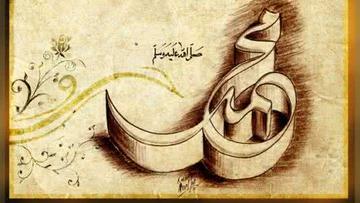 صلى الله عليه وسلم
محمد